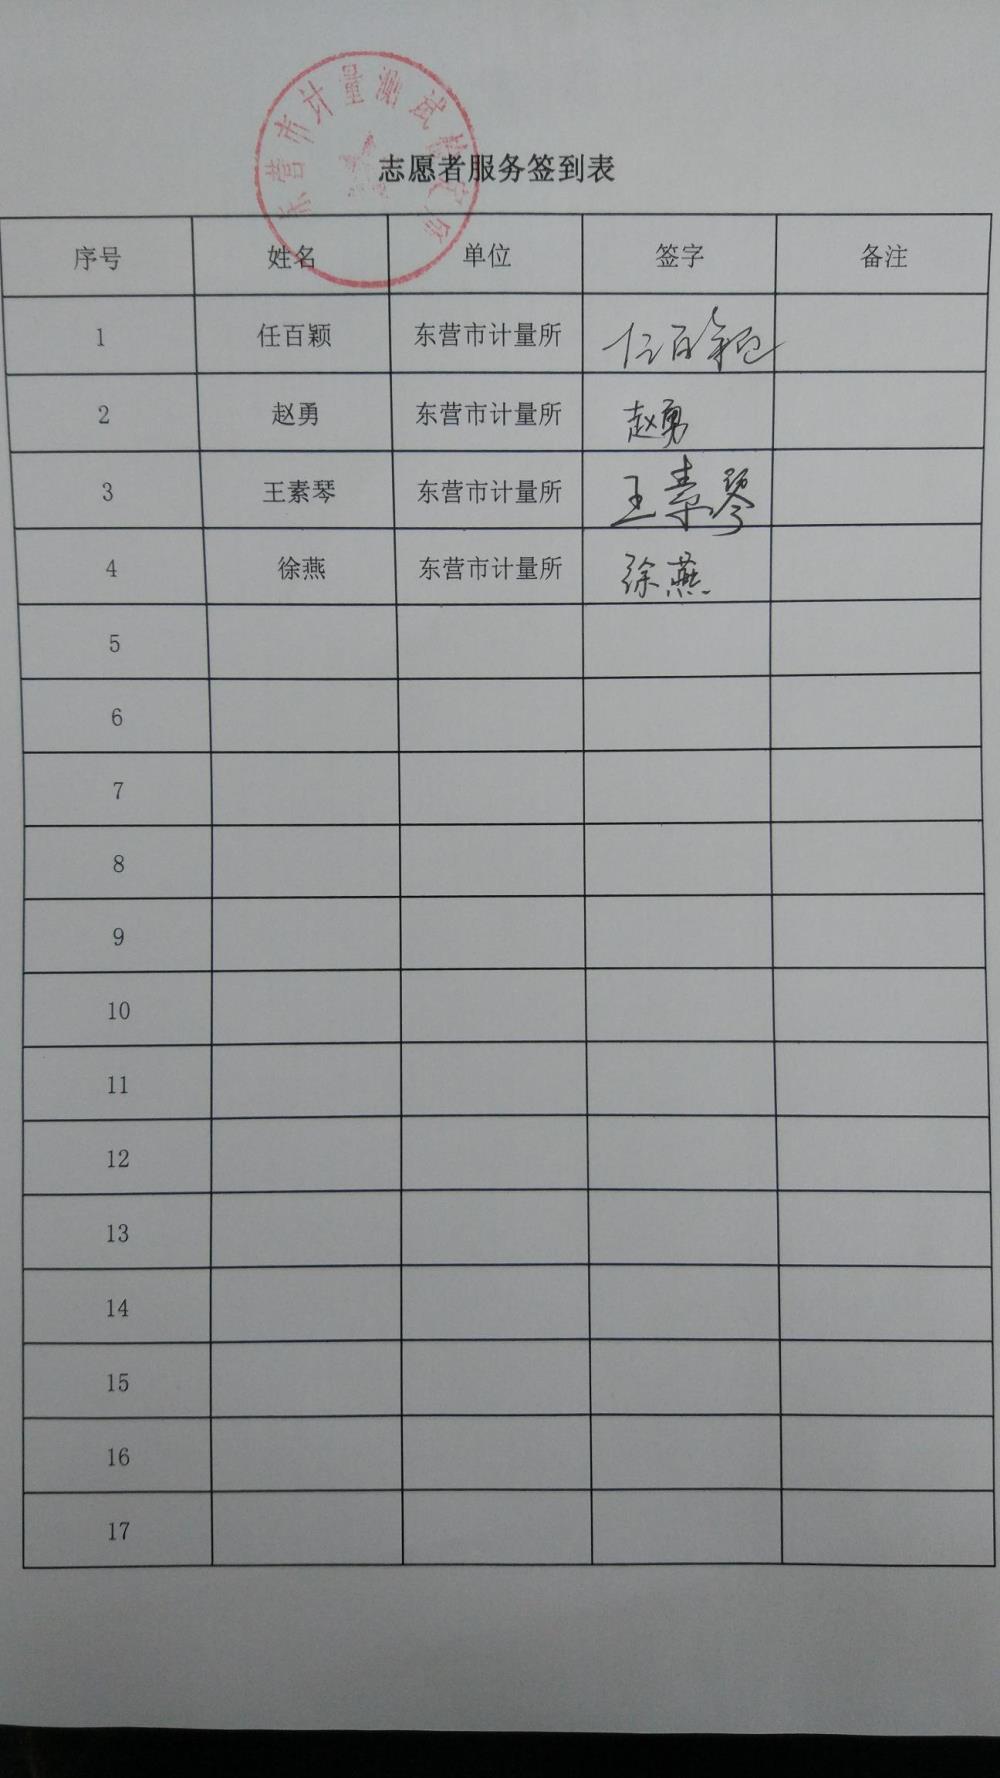 东营市计量测试检定所
志愿者服务签到表
序号 姓名 单位 签字 备注
1 任百颖 东营市计量所 任百颖
2 赵勇 东营市计量所 赵勇
3 王素琴 东营市计量所 王素琴
4 徐燕 东营市计量所 徐燕
5
6
7
8
9
10
11
12
13
14
15
16
17